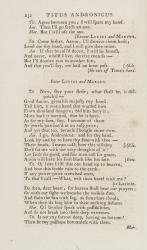 232 TITUS ANDRONICUS
Tit. Agree between you; I will spare my hand.
Luc. Then I'll go fetch an axe.
Mar. But I will use the axe.
[Exeunt LUCIUS and MARCUS.
Tit. Come hither, Aaron; I'll deceive them both;
Lend me thy hand, and I will give thee mine.
Aar. If that be call'd deceit, I will be honest,
And never, whilst I live, deceive men so:—
But I'll deceive you in another sort,
And that you'll say, ere half an hour pass. [Aside.
[He cuts off Titus's hand.
Enter LUCIUS and MARCUS.
Tit. Now, stay your strife; what shall be, is
Good Aaron, give his majesty my hand:
Tell him, it was a hand that warded him
From thousand dangers; bid him bury it;
More hath it merited, that let it have.
As for my sons, say, I account of them
As jewels purchas'd at an easy price;
And yet dear too, because I bought mine own.
Aar. I go, Andronicus: and for thy hand,
Look by and by to have thy sons with thee:—
Their heads, I mean.—O, how this villainy [Aside.
Doth fat me with the very thoughts of it!
Let fools do good, and fair men call for grace,
Aaron will have his soul black like his face. [Exit.
Tit. O, here I lift this one hand up to heaven,
And bow this feeble ruin to the earth:
If any power pities wretched tears,
To that I call:—What, wilt thou kneel with me?
[To Lavinia.
Do then, dear heart; for heaven shall hear our prayers;
Or with our sighs we'll breathe the welkin dim,
And stain the sun with fog, as sometime clouds,
When they do hug him in their melting bosoms.
Mar. O! brother, speak with possibilities,
And do not break into these deep extremes.
Tit. Is not my sorrow deep, having no bottom?
Then be my passions bottomless with them.
Mar.